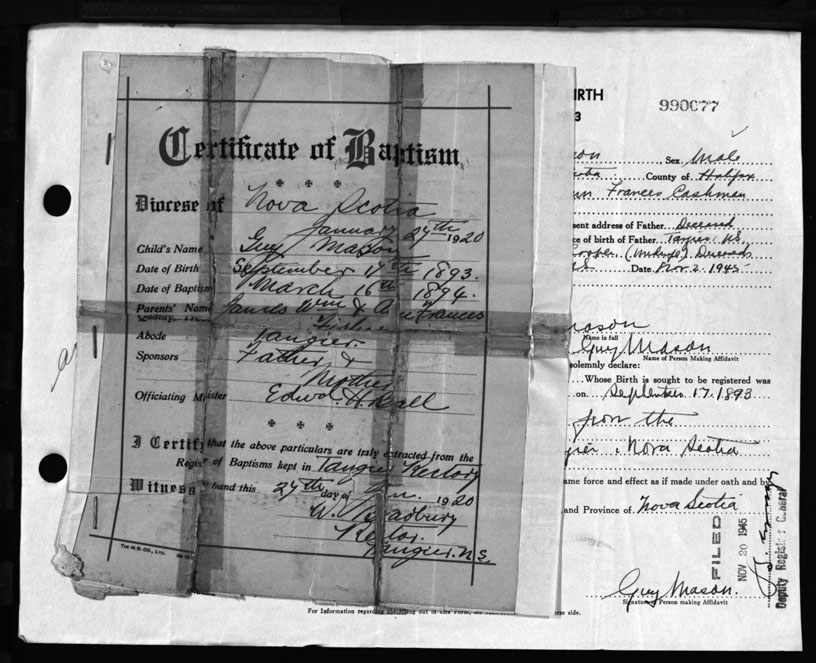 Certificate of Baptism
Diocese of Nova Scotia
January 27th 1920
Child's Name Guy Mason
Date of Birth September 17th 1893.
Date of Baptism March 16th 1894.
Parents' Name James Wm & Frances
Abode Tangier.
Sponsors Father &
Mother
Officiating Minister Edwd. H. Ball
I Certify that the above particulars are truly extracted from the
Register of Baptisms kept in Tangier Rectory
Witness hand this 27th day of Jan. 1920
W. Bradbury
Rector.
Tangier. N.S.
THE M.B. CO., LTD.
IRTH
990077
3
son Sex Male
County of Halifax
nn Frances Cashman
sent address of Father Deceased
ce of birth of Father Tangier N.S.
Cooper (Midwife) Deceased
Date Nov 2. 1945
Mason
Name in full
Guy Mason
Name of Person Making Affidavit
solemnly declare:
Whose Birth is sought to be registered was
on September 17. 1893
from the
gier, Nova Scotia
ame force and effect as if made under oath and by
and Province of Nova Scotia
FILED
NOV 20 1945
Deputy Registrar General
Guy Mason.
Signature of Person making Affidavit
For Information regarding the filling out of this Form, see
se side.